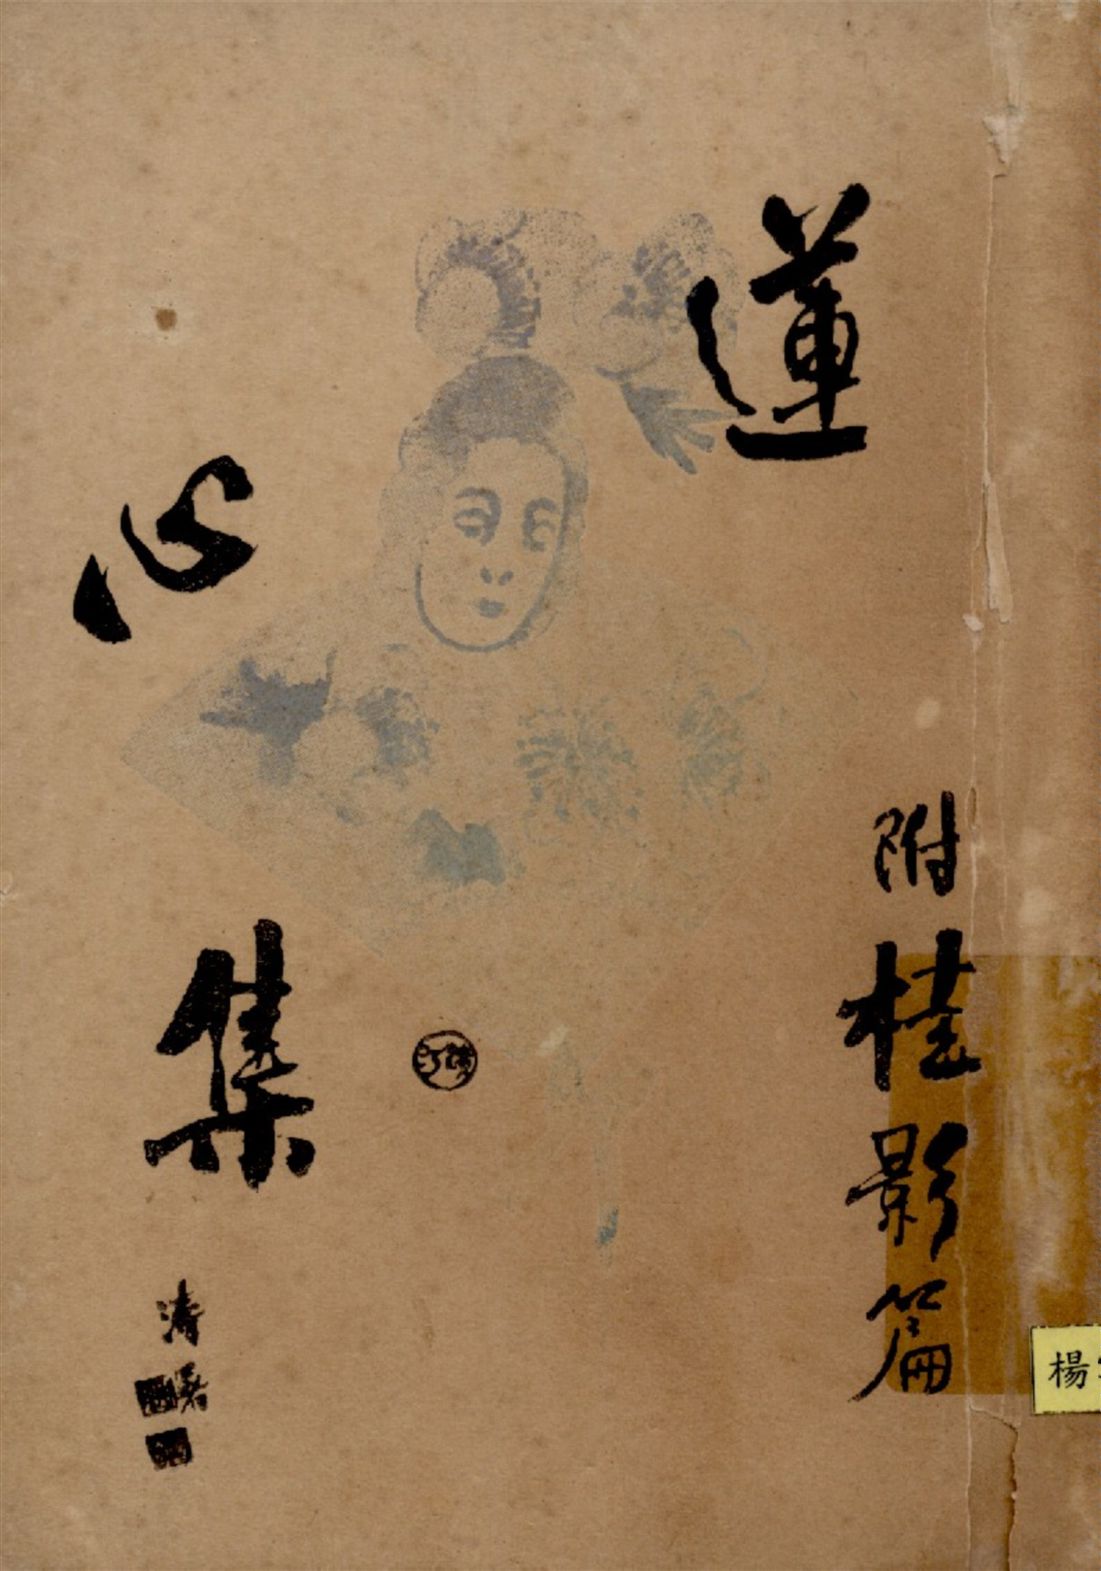 蓮
心
集
附桂影篇
楊